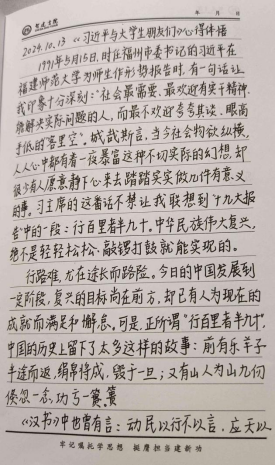 年 月 日
2024.10.13 《习近平与大学生朋友们》心得体悟
1991年5月15日,时任福州市委书记的习近平在
福建师范大学为师生作形势报告时,有一句话让
我印象十分深刻:"社会最需要、最欢迎有实干精神、
能解决实际问题的人,而最不欢迎夸夸其谈、眼高
手低的'客里空'。诚哉斯言,当今社会物欲纵横,
人人心中都有着一夜暴富这种不切实际的幻想,却
很少有人愿意静下心来去踏踏实实做几件有意义
的事。习主席的这番话不禁让我联想到"十九大报
告"中的一段:行百里者半九十。中华民族伟大复兴,
绝不是轻轻松松、敲锣打鼓就能实现的。
行路难,尤在途长而路险。今日的中国发展到
一定阶段,复兴的目标尚在前方,却已有人为现在的
成就而满足和懈怠。可是,正所谓"行百里者半九十",
中国的历史上留下了太多这样的故事:前有乐羊子
半途而返,绢帛待成,毁于一旦;又有山人为山九仞
倏忽一念,功亏一篑
《汉书》中也曾有言:动民以行不以言,应天以
牢记嘱托学思想 挺膺担当建新功